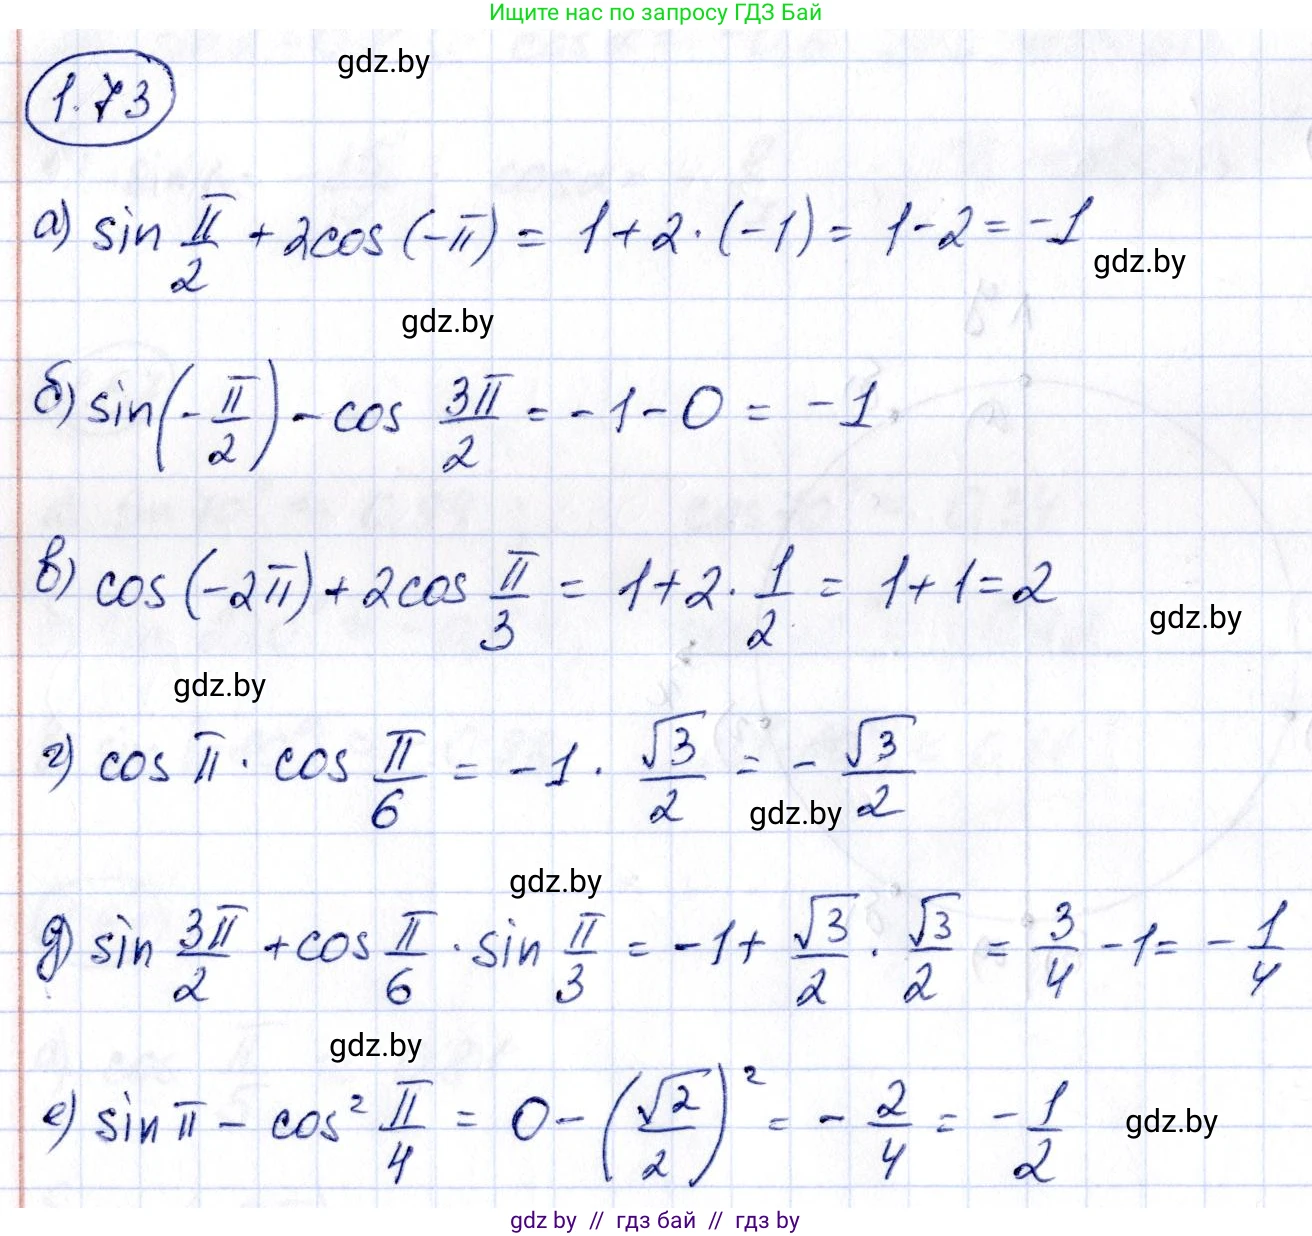 Ищите нас по запросу ГДЗ Бай
gdz.by
1.73
а) sin π/2 + 2cos(-π) = 1+2·(-1) = 1-2 = -1
gdz.by
gdz.by
б) sin(-π/2) - cos 3π/2 = -1-0 = -1
в) cos(-2π)+2cos π/3 = 1+2·1/2 = 1+1=2
gdz.by
gdz.by
г) cos π · cos π/6 = -1 · √3/2 = -√3/2
gdz.by
gdz.by
д) sin 3π/2 +cos π/6 · sin π/3 = -1+ √3/2 · √3/2 = 3/4 -1= -1/4
gdz.by
е) sin π - cos² π/4 = 0-(√2/2)² = -2/4 = -1/2
gdz.by
gdz by // гдз бай // гдз by